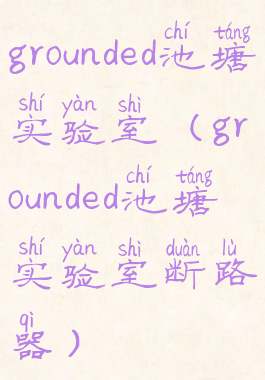 chí táng
grounded池塘
shí yàn shì
实验室（gr
chí táng
ounded池塘
shí yàn shì duàn lù
实验室断路
qì
器）